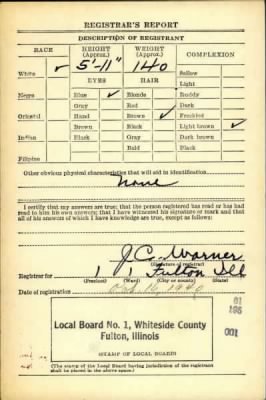 REGISTRAR'S REPORT
DESCRIPTION OF REGISTRANT
RACE HEIGHT (Approx.) WEIGHT (Approx.) COMPLEXION
White ✓ 5'-11" 140 Sallow
EYES HAIR Light
Negro Blue ✓ Blonde Ruddy
Gray Red Dark
Oriental Hazel Brown ✓ Freckled
Brown Black Light brown ✓
Indian Black Gray Dark brown
Bald Black
Filipino
Other obvious physical characteristics that will aid in identification
None
I certify that my answers are true; that the person registered has read or has had read to him his own answers; that I have witnessed his signature or mark and that all of his answers of which I have knowledge are true, except as follows:
J.C. Warner
(Signature of registrar)
Registrar for 1 1 Fulton Ill
(Precinct) (Ward) (City or county) (State)
Date of registration Oct. 16, 1940
Local Board No. 1, Whiteside County
Fulton, Illinois
001
(STAMP OF LOCAL BOARD)
(The stamp of the Local Board having jurisdiction of the registrant shall be placed in the above space.)